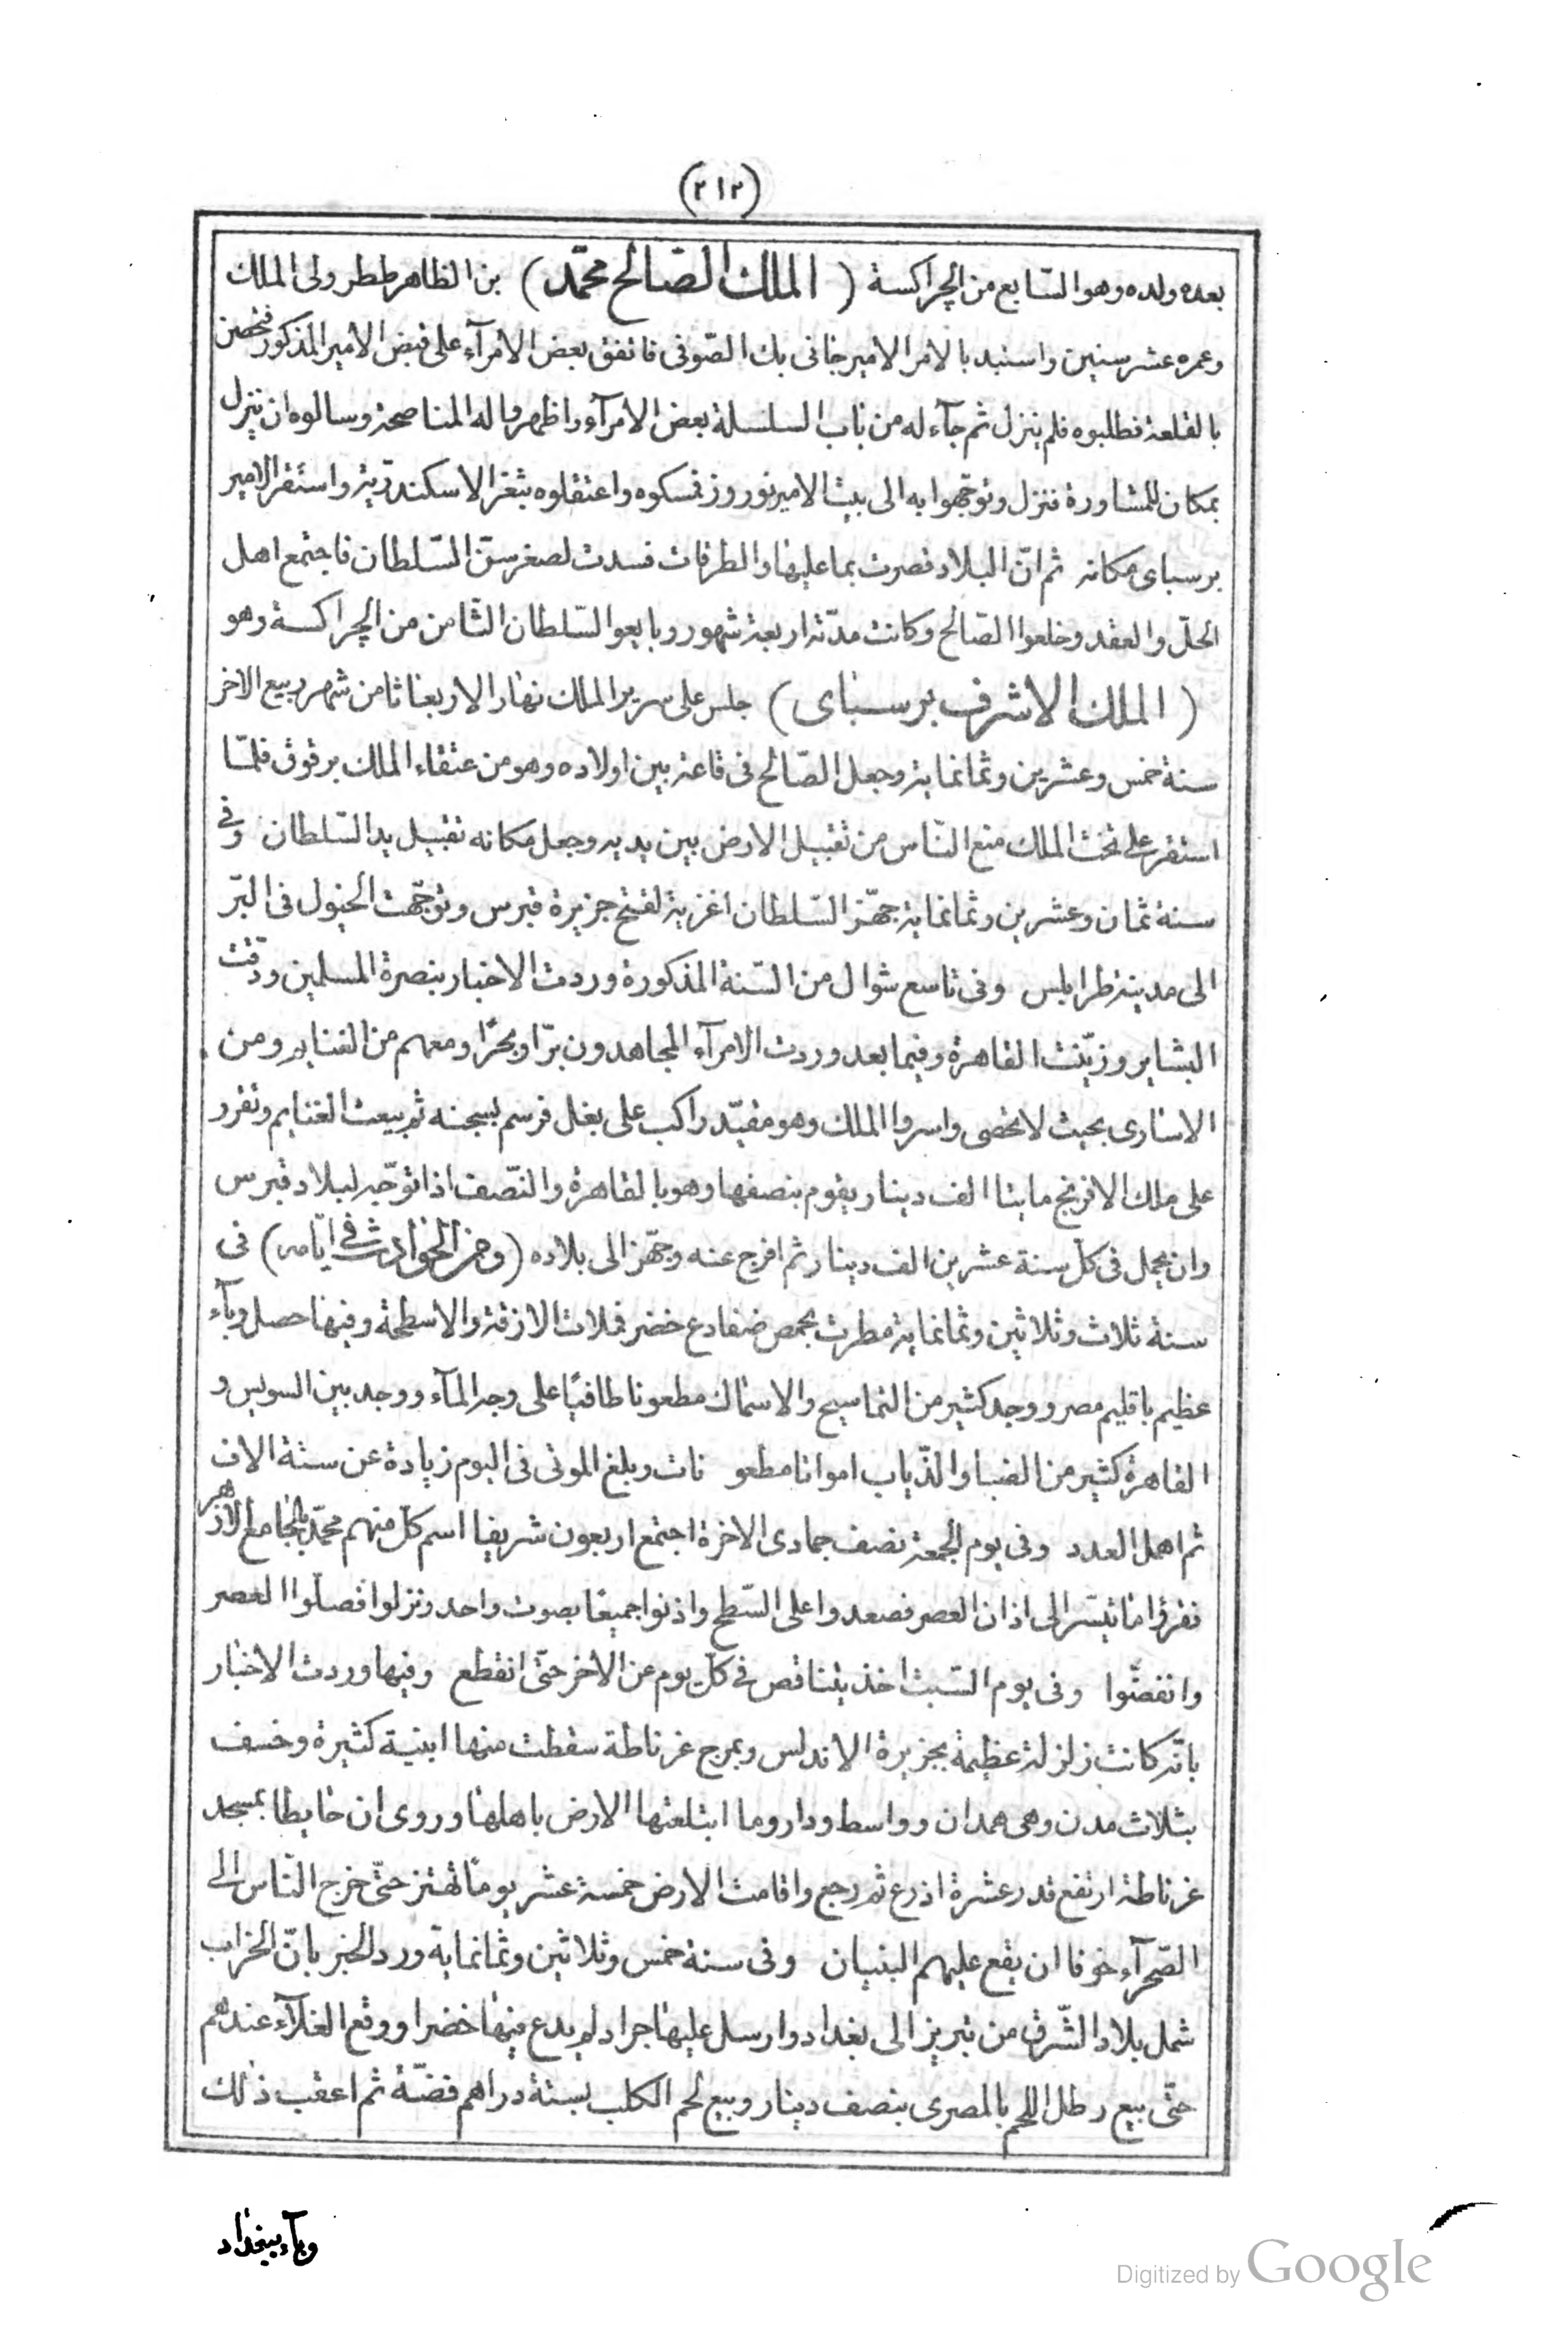 (٢١٢)
بعده ولده وهو السّابع من الچراكسة ( الملك الصّالح محمّد ) بن الظاهر ططر ولى الملك
وعمره عشر سنين واستبد بالامر الامير جانى بك الصّوفى فاتفق بعض الامرآء على قبض الامير المذكور فتحصن
بالقلعة فطلبوه فلم ينزل ثم جآء له من باب السلسلة بعض الامرآء واظهروا له المناصحة وسالوه ان ينزل
بمكان للمشاورة فنزل وتوجّهوا به الى بيت الامير نوروز فمسكوه واعتقلوه بثغر الاسكندريّة واستقر الامير
برسباى مكانه ثم انّ البلاد قصرت بما عليها والطرقات فسدت لصغر سنّ السّلطان فاجتمع اهل
الحلّ والعقد وخلعوا الصّالح وكانت مدّته اربعة شهور وبايعوا السّلطان الثّامن من الچراكسة وهو
( الملك الاشرف برسباى ) جلس على سرير الملك نهار الاربعا ثامن شهر ربيع الاخر
سنة خمس وعشرين وثمانماية وجعل الصّالح فى قاعة بين اولاده وهو من عتقاء الملك برقوق فلمّا
استقر على تخت الملك منع النّاس من تقبيل الارض بين يديه وجعل مكانه تقبيل يد السّلطان وفى
سنة ثمان وعشرين وثمانماية جهّز السّلطان اغزية لفتح جزيرة قبرس وتوجّهت الخيول فى البّر
الى مدينة طرابلس وفى تاسع شوال من السّنة المذكورة وردت الاخبار بنصرة المسلمين ودقت
البشاير وزيّنت القاهرة وفيما بعد وردت الامرآء المجاهدون برّا وبحرًا ومعهم من الغنايم ومن
الاسارى بحيث لا تحصى واسروا الملك وهو مقيّد راكب على بغل فرسم بسجنه ثم بيعت الغنايم وتقرر
على ملك الافرنج مايتا الف دينار يقوم بنصفها وهو بالقاهرة والنّصف اذا توجّه لبلاد قبرس
وان يحمل فى كلّ سنة عشرين الف دينار ثم افرج عنه وجهّز الى بلاده (ومن الحوادث فى ايّامه) فى
سنة ثلاث وثلاثين وثمانماية مطرت بحمص ضفادع خضر فملات الازقة والاسطحة وفيها حصل وبآء
عظيم باقليم مصر ووجد كثير من التماسيح والاسماك مطعونا طافيًا على وجه المآء ووجد بين السويس و
القاهرة كثير من الضبا والذّياب امواتا مطعو نات وبلغ الموتى فى اليوم زيادة عن ستة الاف
ثم اهمل العدد وفى يوم الجمعة نصف جمادى الاخرة اجتمع اربعون شريفا اسم كلّ منهم محمّد بالجامع الازهر
فقرؤا ما تيسّر الى اذان العصر فصعدوا على السّطح واذنوا جميعًا بصوت واحد ونزلوا فصلّوا العصر
وانفضّوا وفى يوم السّبت اخذ يتناقص فى كلّ يوم عن الاخر حتّى انقطع وفيها وردت الاخبار
بانّه كانت زلزلة عظيمة بجزيرة الاندلس وبمرج غرناطة سقطت منها ابنية كثيرة وخسف
بثلاث مدن وهى همدان وواسط وداروما ابتلعتها الارض باهلها وروى ان حايطا بمسجد
غرناطة ارتفع قدر عشرة اذرع ثم رجع واقامت الارض خمسة عشر يومًا تهتز حتّى خرج النّاس الى
الصّحرآء خوفا ان يقع عليهم البنيان وفى سنة خمس وثلاثين وثمانماية ورد الخبر بانّ الخراب
شمل بلاد الشّرق من تبريز الى بغداد وارسل عليها جراد لم يدع فيها خضرا ووقع الغلآء عندهم
حتّى بيع رطل اللحم بالمصرى بنصف دينار وبيع لحم الكلب بستة دراهم فضّة ثم اعقب ذلك
وبآء ببغداد
Digitized by Google